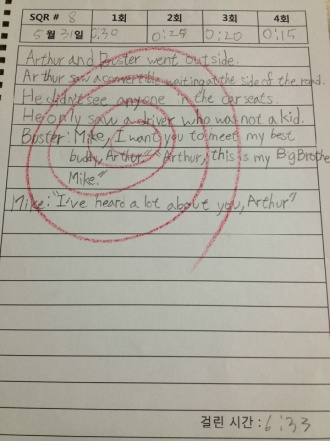 SQR # 8 1회 2회 3회 4회
5월 31일 0:30 0:25 0:20 0:15
Arthur and Buster went outside.
Arthur saw a convertible waiting at the side of the road.
He didn't see anyone in the car seats.
He only saw a driver who was not a kid.
Buster: Mike, I want you to meet my best
buddy, Arthur." "Arthur, this is my Big Brother
Mike."
Mike: "I've heard a lot about you, Arthur"
걸린 시간 : 6:33